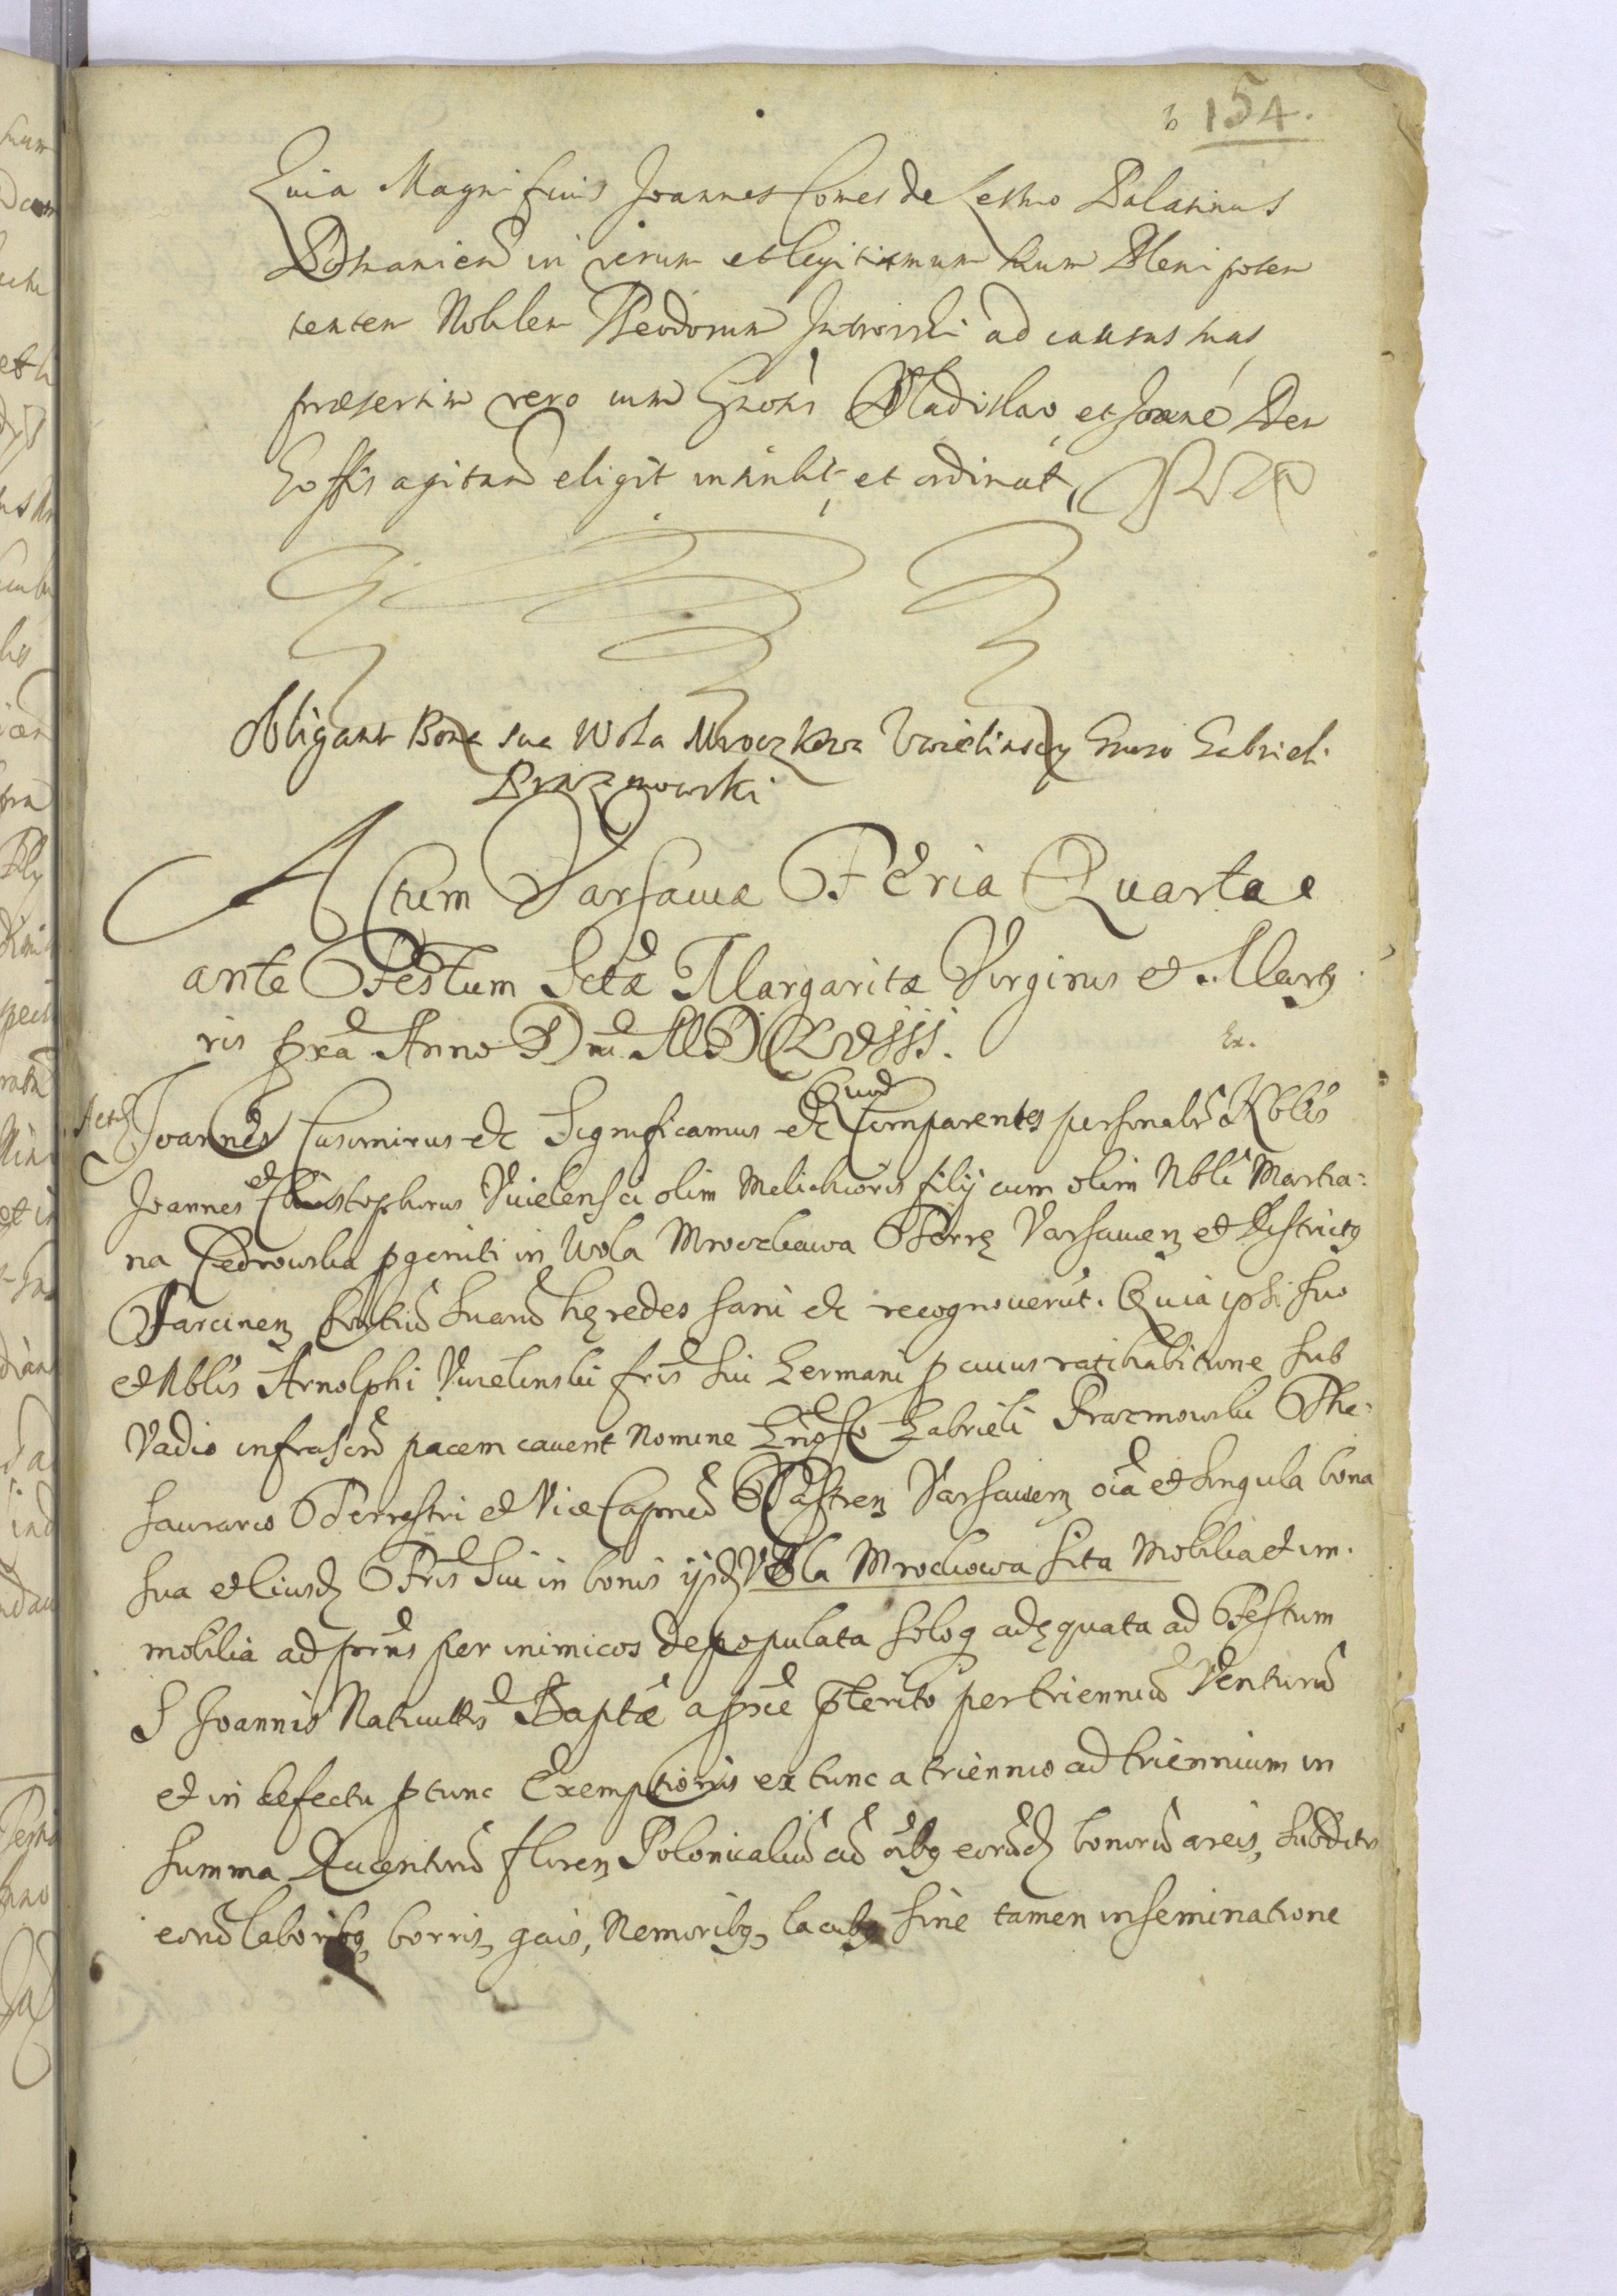 154.
Quia Magnificus Joannes Comes de Leszno Palatinus
Posnanien in verum et legitimum suum Plenipoten
tentem Nobilem Theodorum ad causas suas
præsertim vero cum Gnosis Vladislao et Joane Den
hoffis agitand eligit et ordinat,
Obligant Bona sua Wola Mroczkowa Vwielinscy Gnoso Gabrieli
Prazmowski
Actum Varsaviæ Feria Quarta
ante Festum Sctæ Margaritæ Virginis et Marty
ris pxa Anno Dni MDCLVIII.
Ex.
Joannes Casimirus etc Significamus etc Quia Comparentes personalr Nobles
Joannes et Christophorus Vwielensci olim Melichioris filij cum olim Nbli Martia:
na Cedrowska pgeniti in Wola Mroczkowa Terrę Varsavien et Districtq
Tarcinen sortiu suaru hęredes sani etc recognoverut. Quia ipsi suo
et Nblis Arnolphi Vwielinski fris sui Germani p cuius ratihabitione sub
Vadio infrascro pacem cavent nomine Gnoso Gabrieli Prazmowski The:
saurario Terrestri et Vice Capneo Castren Varsavien oia et singula bona
sua et Eiusd Fris Sui in bonis ijsd Wola Mrockowa sita Mobilia et im.
mobilia ad prns per inimicos depopulata soloq adęquata ad Festum
S Joannis Nativittis Baptæ a pxe pterito per triennium Venturu
et in defectu ptunc Exemptionis ex tunc a triennio ad triennium in
summa Ducentoru floren Polonicaliu cu oibq eorud bonoru areis, subditis
eoru laboribq, borris, gais, Nemoribq, lacubq sine tamen inseminatione